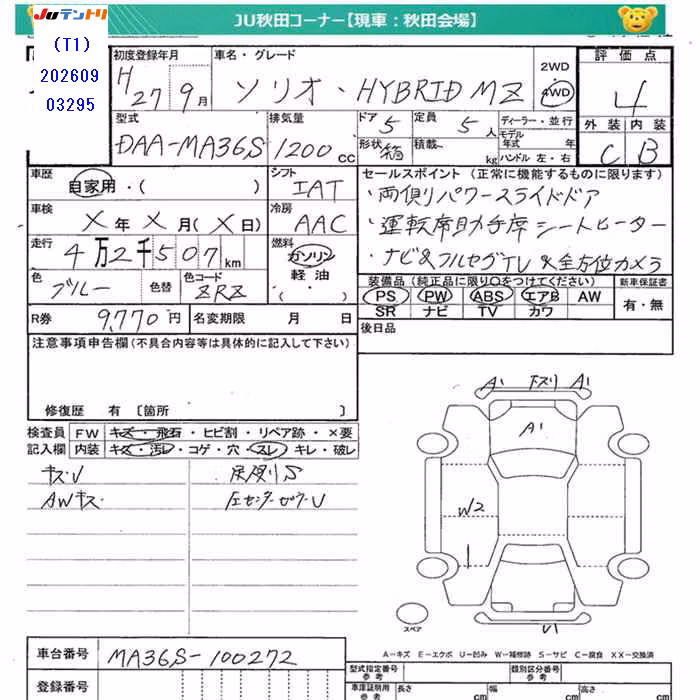 JUテントリ
JU秋田コーナー【現車：秋田会場】
（T1）
202609
03295
初度登録年月
車名・グレード
2WD
4WD
評価点
H27 9月
ソリオ・HYBRID MZ
4
型式
排気量
ドア 5
定員 5人
ディーラー・並行
外装 内装
DAA-MA36S
1200cc
形状 箱
積載 kg
モデル年式 年式
ハンドル 左・右
C B
車歴
自家用・( )
シフト
IAT
セールスポイント（正常に機能するものに限ります）
・両側パワースライドドア
車検
X年X月(X日)
冷房
AAC
・運転席助手席シートヒーター
走行
4万2千507km
燃料
ガソリン
軽油
( ・ )
・ナビ&フルセグTV&全方位カメラ
色
ブルー
色替
色コード
ZRZ
装備品（純正品に限り○をつけてください）
新車保証書
PS PW ABS エアB AW
有・無
SR ナビ TV カワ
R券
9,770円
名変期限 月 日
後日品
注意事項申告欄（不具合内容等は具体的に記入して下さい）
修復歴 有 [箇所 ]
検査員
記入欄
FW キズ・飛石・ヒビ割・リペア跡・×要
内装 キズ・汚レ・コゲ・穴・スレ・キレ・破レ
キズU
AWキズ
A1 下ズリ A1
A1
W2
U1
スペア
A－キズ E－エクボ U－凹み W－補修跡 S－サビ C－腐食 XX－交換済
車台番号
MA36S-100272
登録番号
型式指定番号
参考
類別区分番号
参考
車庫証明用
参考
長さ cm
幅 cm
高さ cm